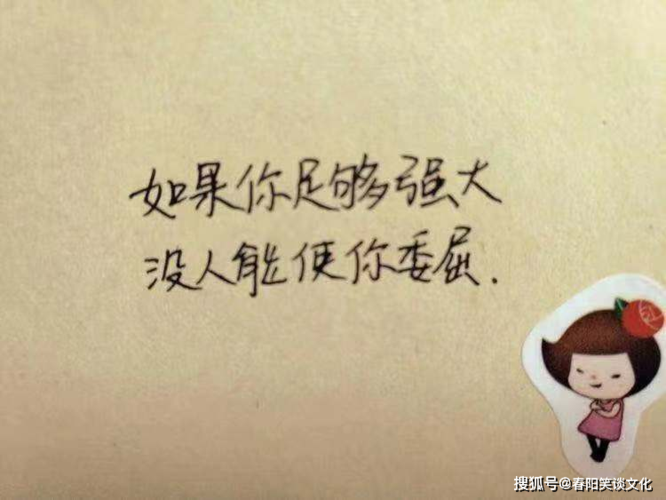 如果你足够强大
没人能使你委屈.
搜狐号@春阳笑谈文化